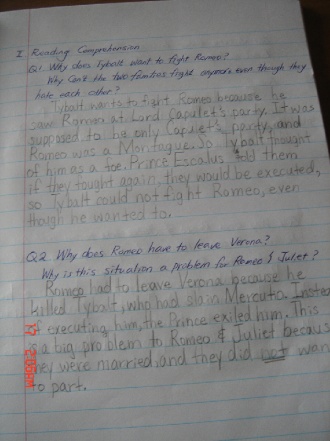 I Reading Comprehension
Q1. Why does Tybalt want to fight Romeo?
Why can't the two families fight anymore even though they
hate each other?
Tybalt wants to fight Romeo because he
saw Romeo at Lord Capulet's party. It was
supposed to be only Capulet's party, and
Romeo was a Montague. So Tybalt thought
of him as a foe. Prince Escalus told them
if they fought again, they would be executed,
so Tybalt could not fight Romeo, even
though he wanted to.
Q2. Why does Romeo have to leave Verona?
Why is this situation a problem for Romeo & Juliet?
Romeo had to leave Verona because he
killed Tybalt, who had slain Mercutio. Instea
of executing him, the Prince exiled him. This
is a big problem to Romeo & Juliet becaus
they were married, and they did not wan
to part.